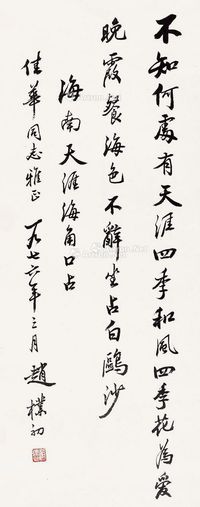 不知何處有天涯四季和風四季花為愛
晚霞餐海色不辭坐占白鷗沙
海南天涯海角口占
佳華同志雅正 一九七六年三月 趙樸初